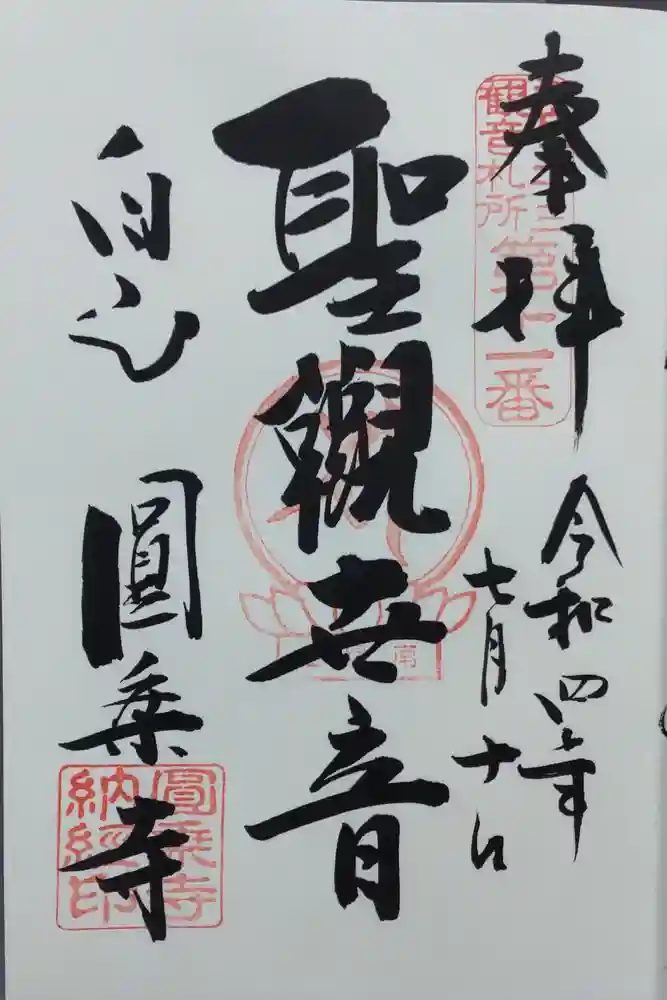 奉拝
令和四年
七月十日
聖觀世音
白山
圓乗寺
観音札所
第十一番
南
圓乗寺
納経印